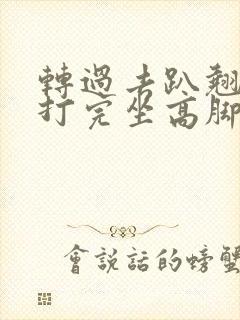 轉過去趴翹
打完坐高腳
會說話的螃蟹